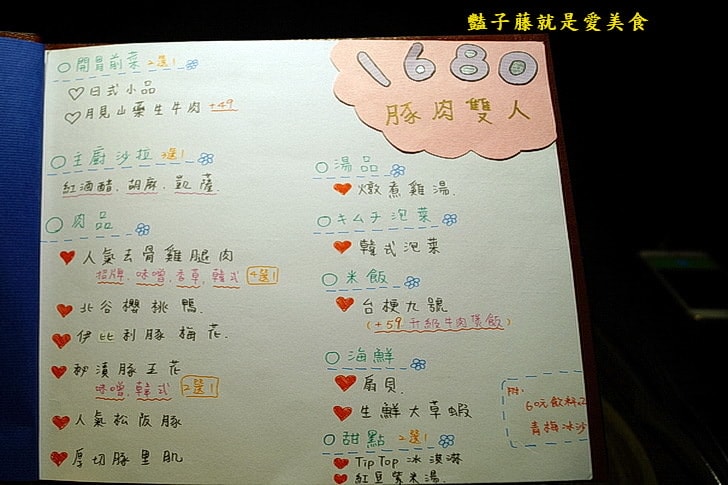 豔子藤就是愛美食
1680
豚肉雙人
開胃前菜 2選1
日式小品
月見山藥生牛肉 +49
主廚沙拉 3選1
紅酒醋、胡麻、凱薩
肉品
人氣去骨雞腿肉
招牌、味噌、香草、韓式 4選1
北谷櫻桃鴨
伊比利豚梅花
豚五花
味噌、韓式 2選1
人氣松阪豚
厚切豚里肌
湯品
燉煮雞湯
キムチ泡菜
韓式泡菜
米飯
台梗九號
(+59升級牛肉煲飯)
海鮮
扇貝
生鮮大草蝦
甜點 2選1
TipTop 冰淇淋
紅豆紫米湯
附:
60元飲料
青梅冰沙